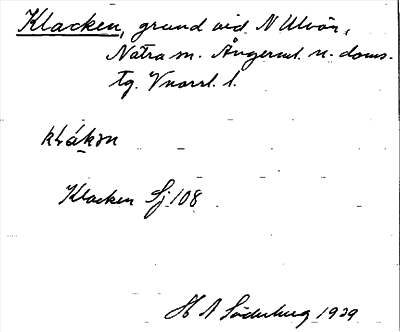 Klacken, grund vid N Ulvön,
Nätra sn. Ångerml. n. doms.
tg. Vnorrl. l.
klákən
Klacken Sj 108
H A Söderberg 1929